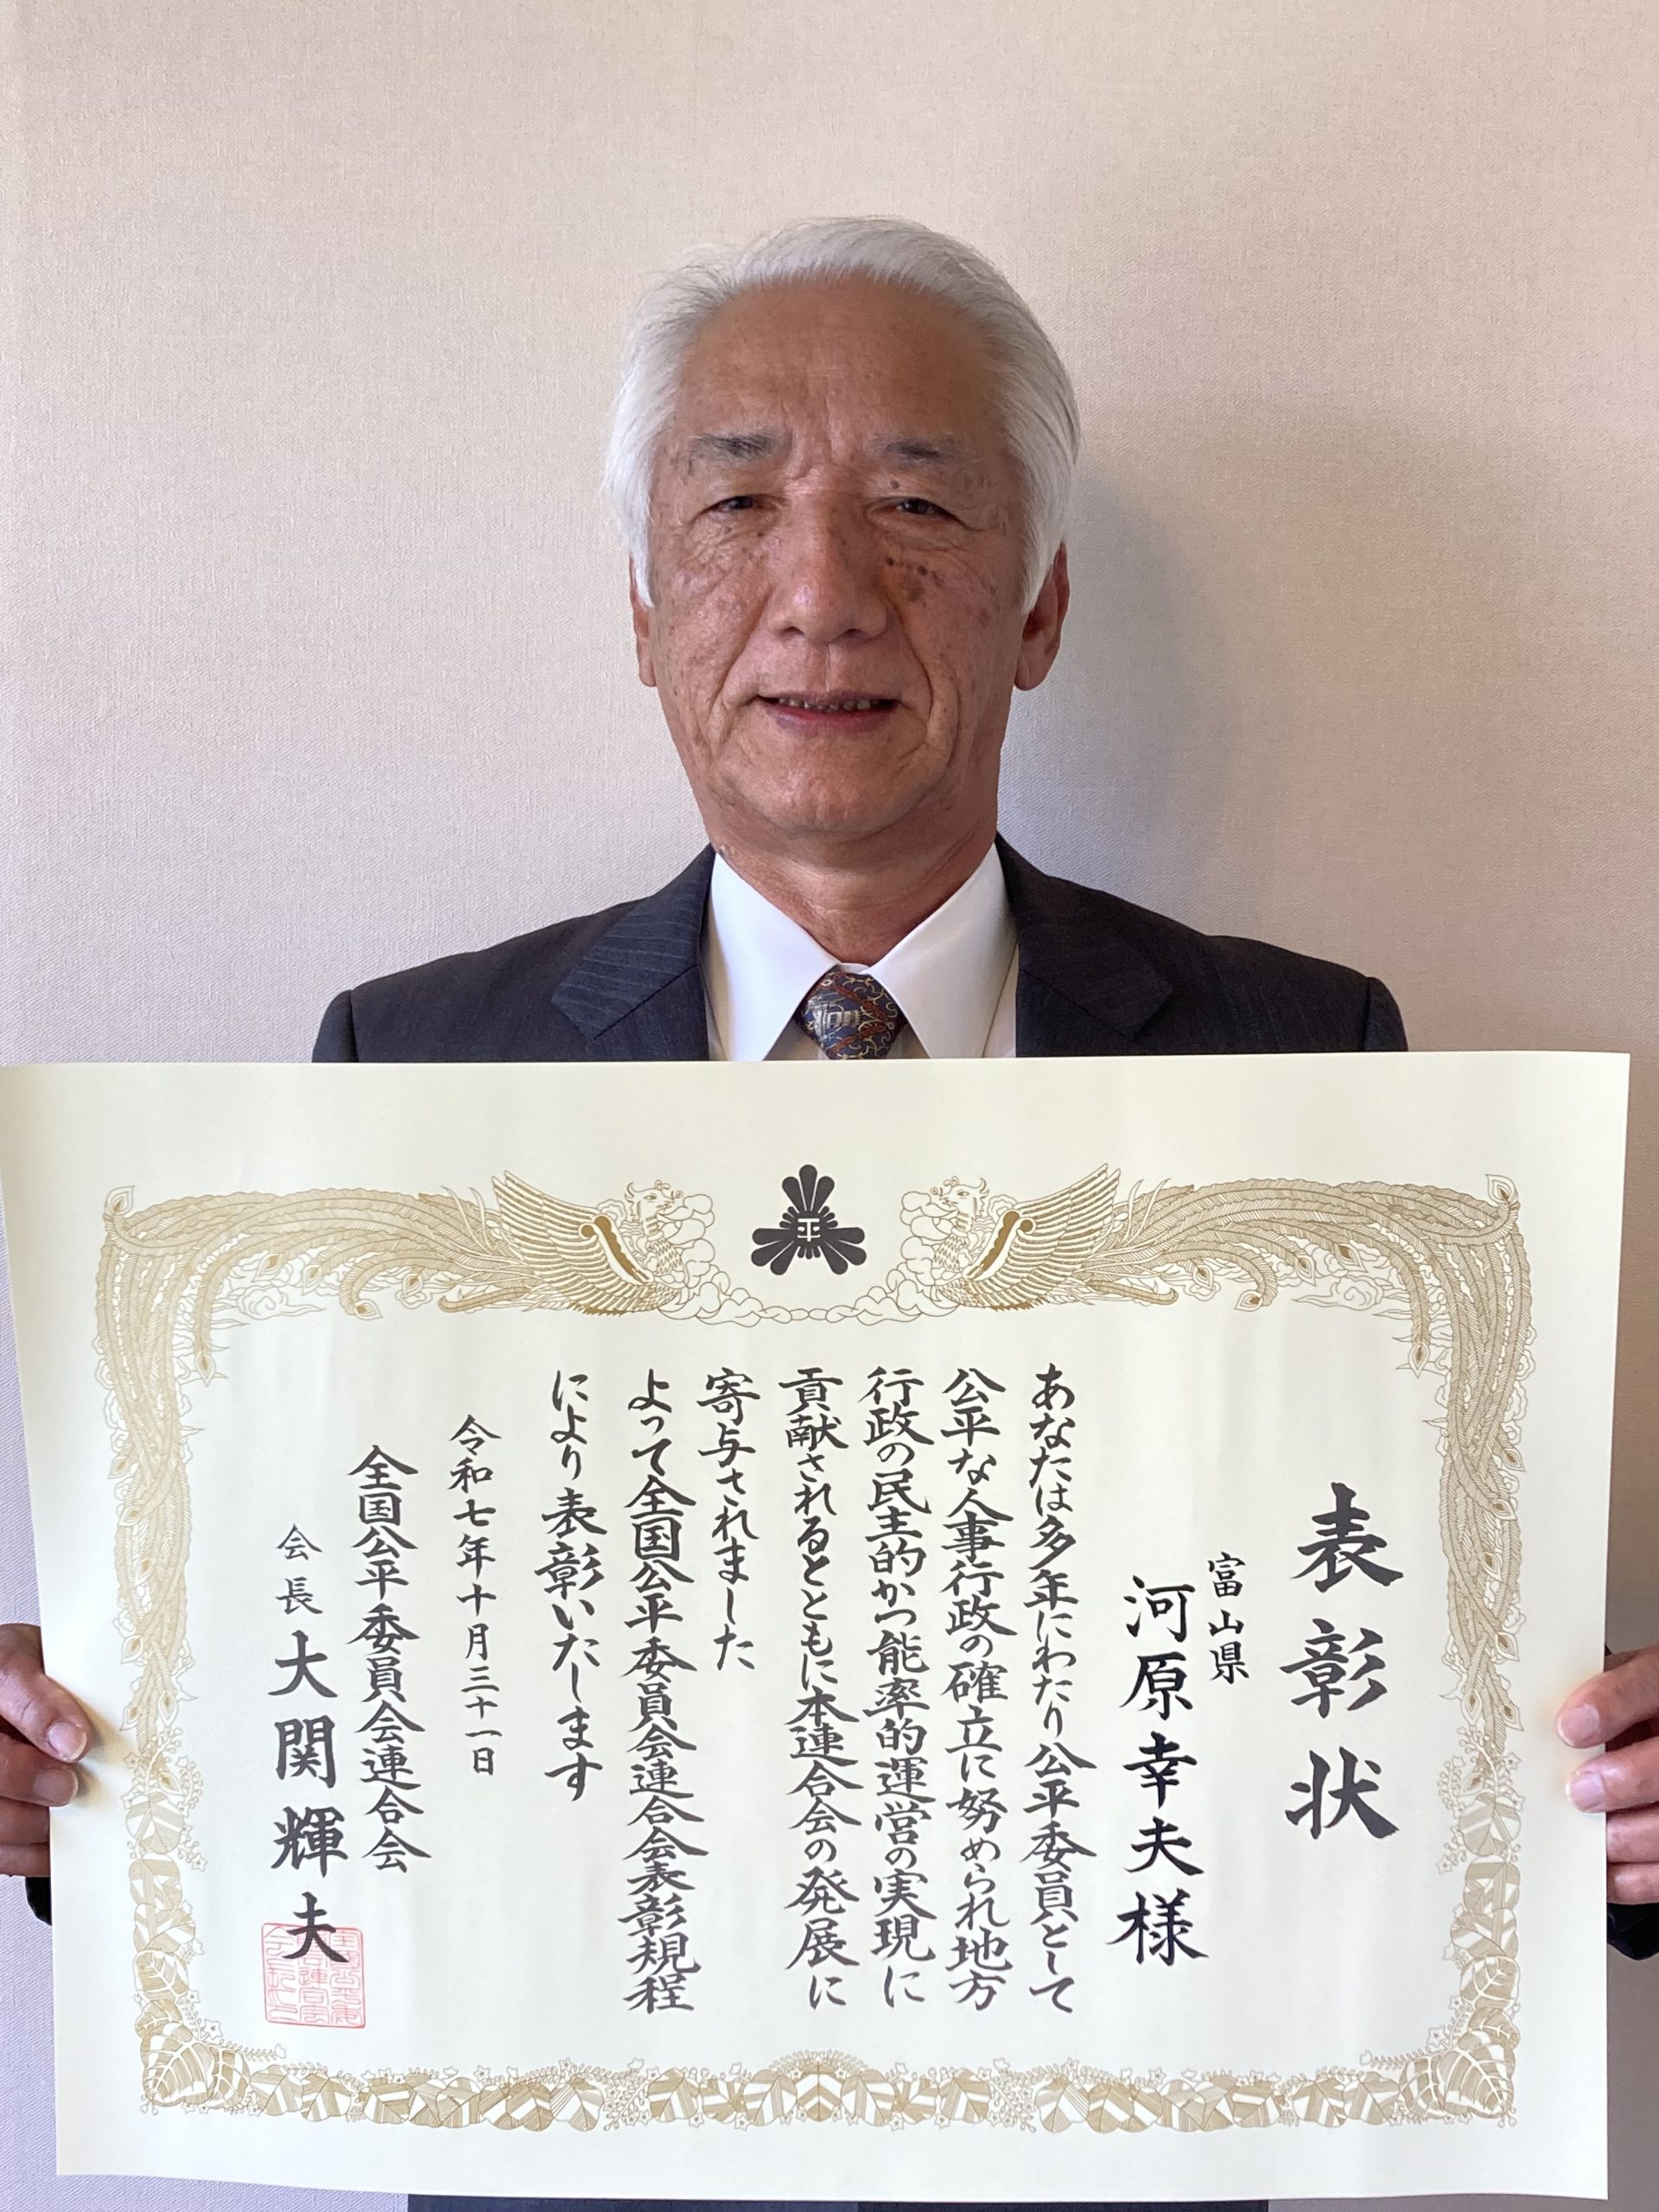 平
表彰状
富山県
河原幸夫様
あなたは多年にわたり公平委員として
公平な人事行政の確立に努められ地方
行政の民主的かつ能率的運営の実現に
貢献されるとともに本連合会の発展に
寄与されました
よって全国公平委員会連合会表彰規程
により表彰いたします
令和七年十月三十一日
全国公平委員会連合会
会長 大関輝夫